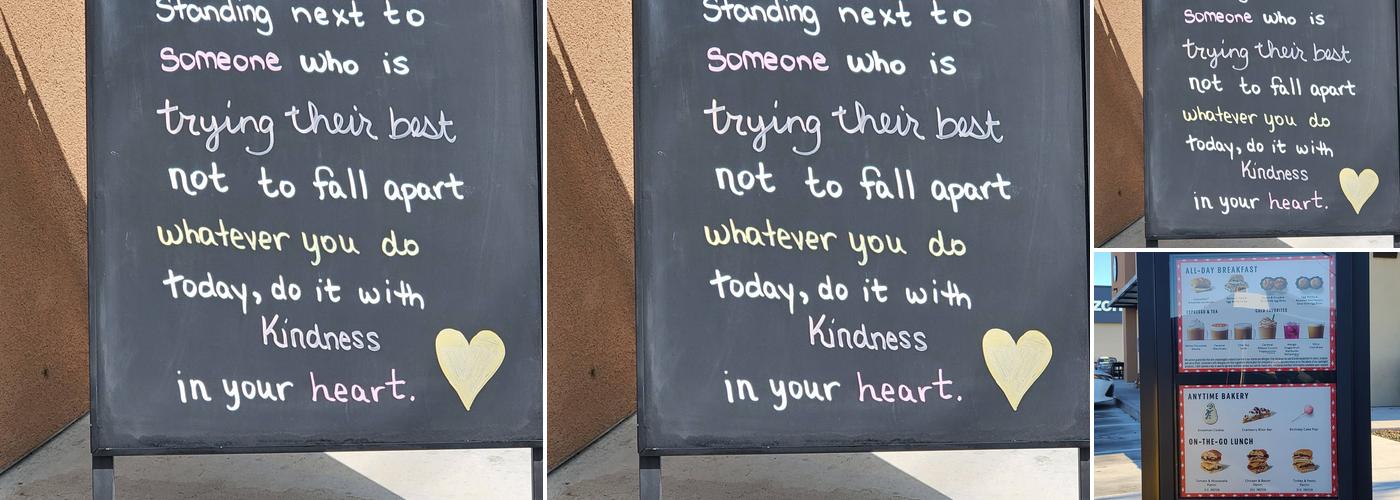 Standing next to
Someone who is
trying their best
not to fall apart
whatever you do
today, do it with
Kindness
in your heart.
Standing next to
Someone who is
trying their best
not to fall apart
whatever you do
today, do it with
Kindness
in your heart.
Someone who is
trying their best
not to fall apart
whatever you do
today, do it with
Kindness
in your heart.
ALL-DAY BREAKFAST
ESPRESSO & TEA
COLD FAVORITES
ANYTIME BAKERY
Cranberry Bliss Bar
Birthday Cake Pop
ON-THE-GO LUNCH
Tomato & Mozzarella
Chicken & Bacon
Turkey & Pesto